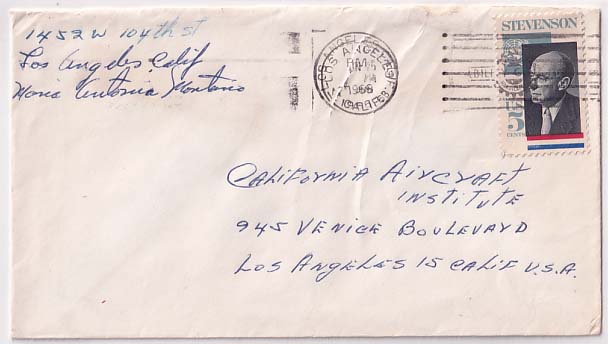 1452 W 104th st
Los Angeles Calif
Maria Antonia Montano
LOS ANGELES
PM
1966
CALIF
STEVENSON
5
CENTS
CALIFORNIA AIRCRAFT
INSTITUTE
945 VENICE BOULEVARD
LOS ANGELES 15 CALIF U.S.A.